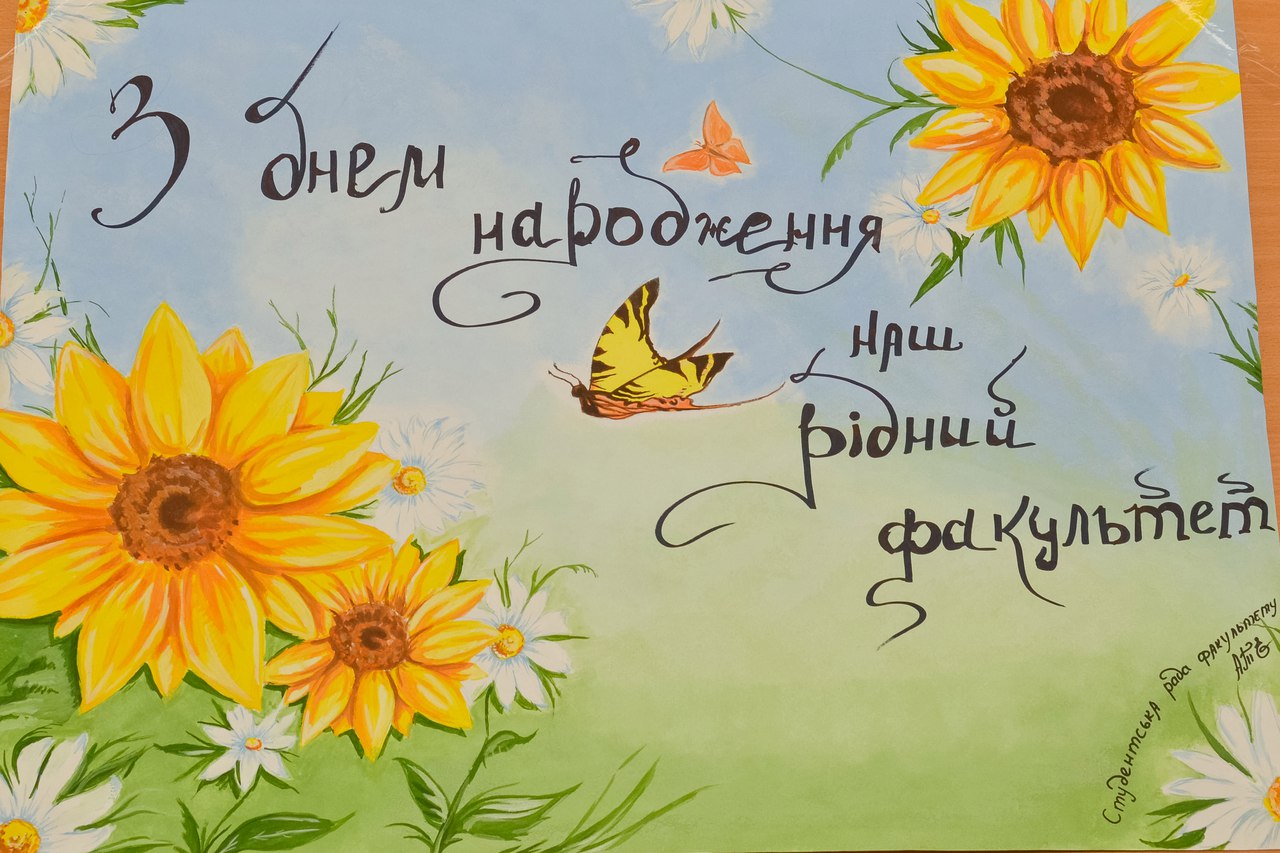 З днем
народження
наш
рідний
факультет
Студентська рада факультету